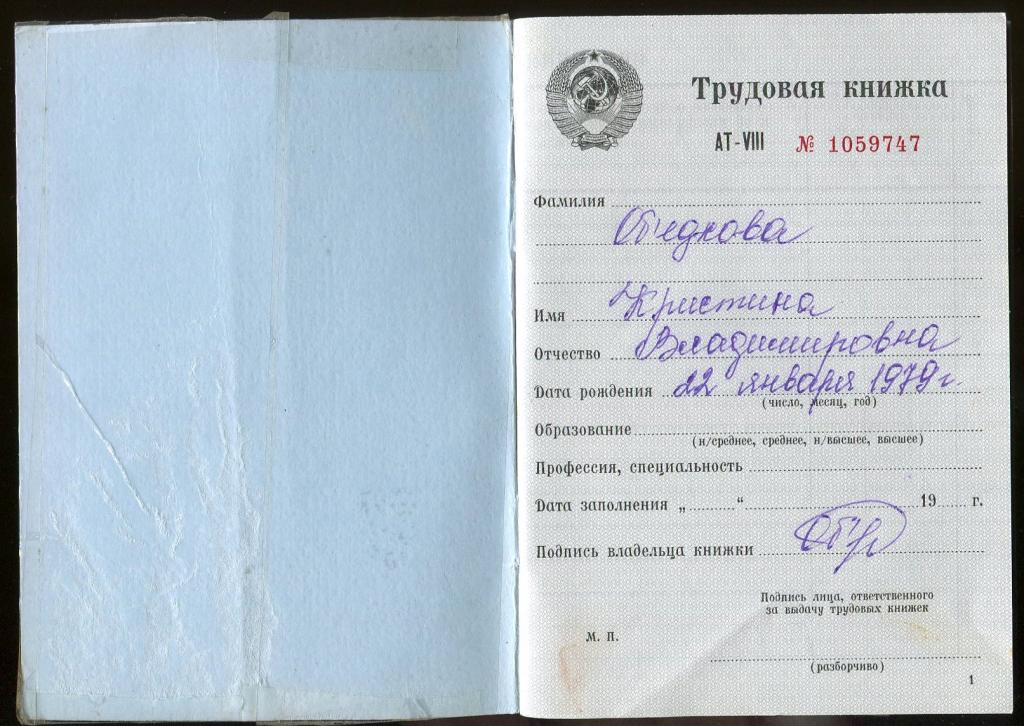 Трудовая книжка
АТ-VIII № 1059747
Фамилия
Имя Кристина
Отчество Владимировна
Дата рождения 22 января 1979 г.
(число, месяц, год)
Образование
(н/среднее, среднее, н/высшее, высшее)
Профессия, специальность
Дата заполнения „ “ 19 г.
Подпись владельца книжки
Подпись лица, ответственного
за выдачу трудовых книжек
М. П.
(разборчиво)
1